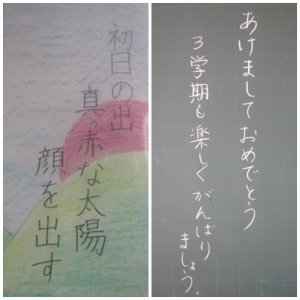 初日の出
真っ赤な太陽
顔を出す
あけましておめでとう
3学期も楽しくがんばり
ましょう.